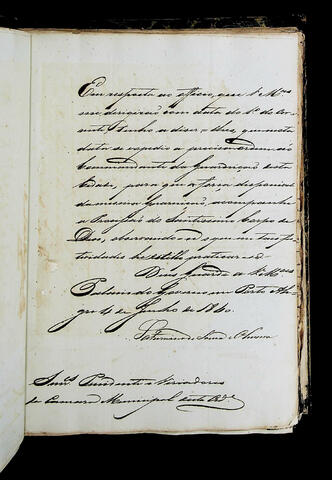 Em resposta ao officio, que V. M.ces
me dirigirão com data do 1º do cor-
rente tenho a dizer-lhes, que nesta
data se expedio a precisa ordem ao
Commandante da Guarnição desta
Cidade, para que a força disponivel
da mesma Guarnição, acompanhe
a Procissão do Santissimo Corpo de
Deos, observando-se o que em taes so-
lemnidades he estilo praticar-se.
Deus Guarde a V. M.ces
Palacio do Governo em Porto Ale-
gre 4 de Junho de 1840.
Saturnino de Souza e Oliveira
Snr.es Presidente e Vereadores
da Camara Municipal desta Cid.e